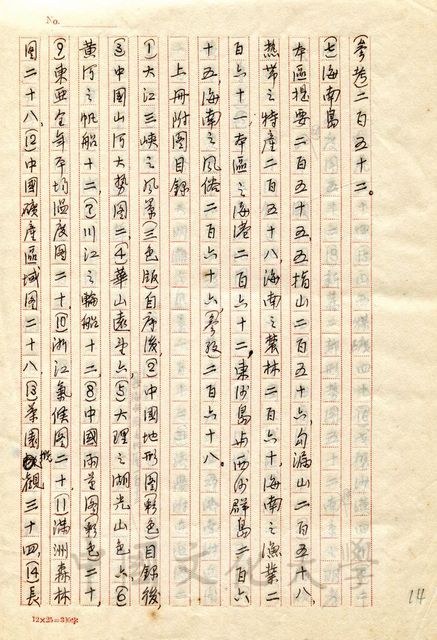 No.
(參考)二百五十二。
(七)海南島
本區提要二百五十五,五指山二百五十六,勾漏山二百五十八,
熱帶之特產二百五十八,海南之農林二百六十,海南之漁業二
百六十一,本區之海港二百六十二,東沙島與西沙群島二百六
十五,海南之風俗二百六十六,(參考)二百六十八。
上冊附圖目錄
①大江三峽之風景(三色版)自序後,②中國地形圖(彩色)目錄後,
③中國山河大勢圖二,④華山遠望六,⑤大理之湖光山色六,⑥
黃河之帆船十二,⑦川江之輪船十二,⑧中國雨量圖(彩色)二十,
⑨東亞全年平均溫度圖二十,⑩浙江氣候圖二十,⑪滿洲森林
圖二十八,⑫中國礦產區域圖二十八,⑬茶園概觀三十四,⑭長
14
12×25=300字